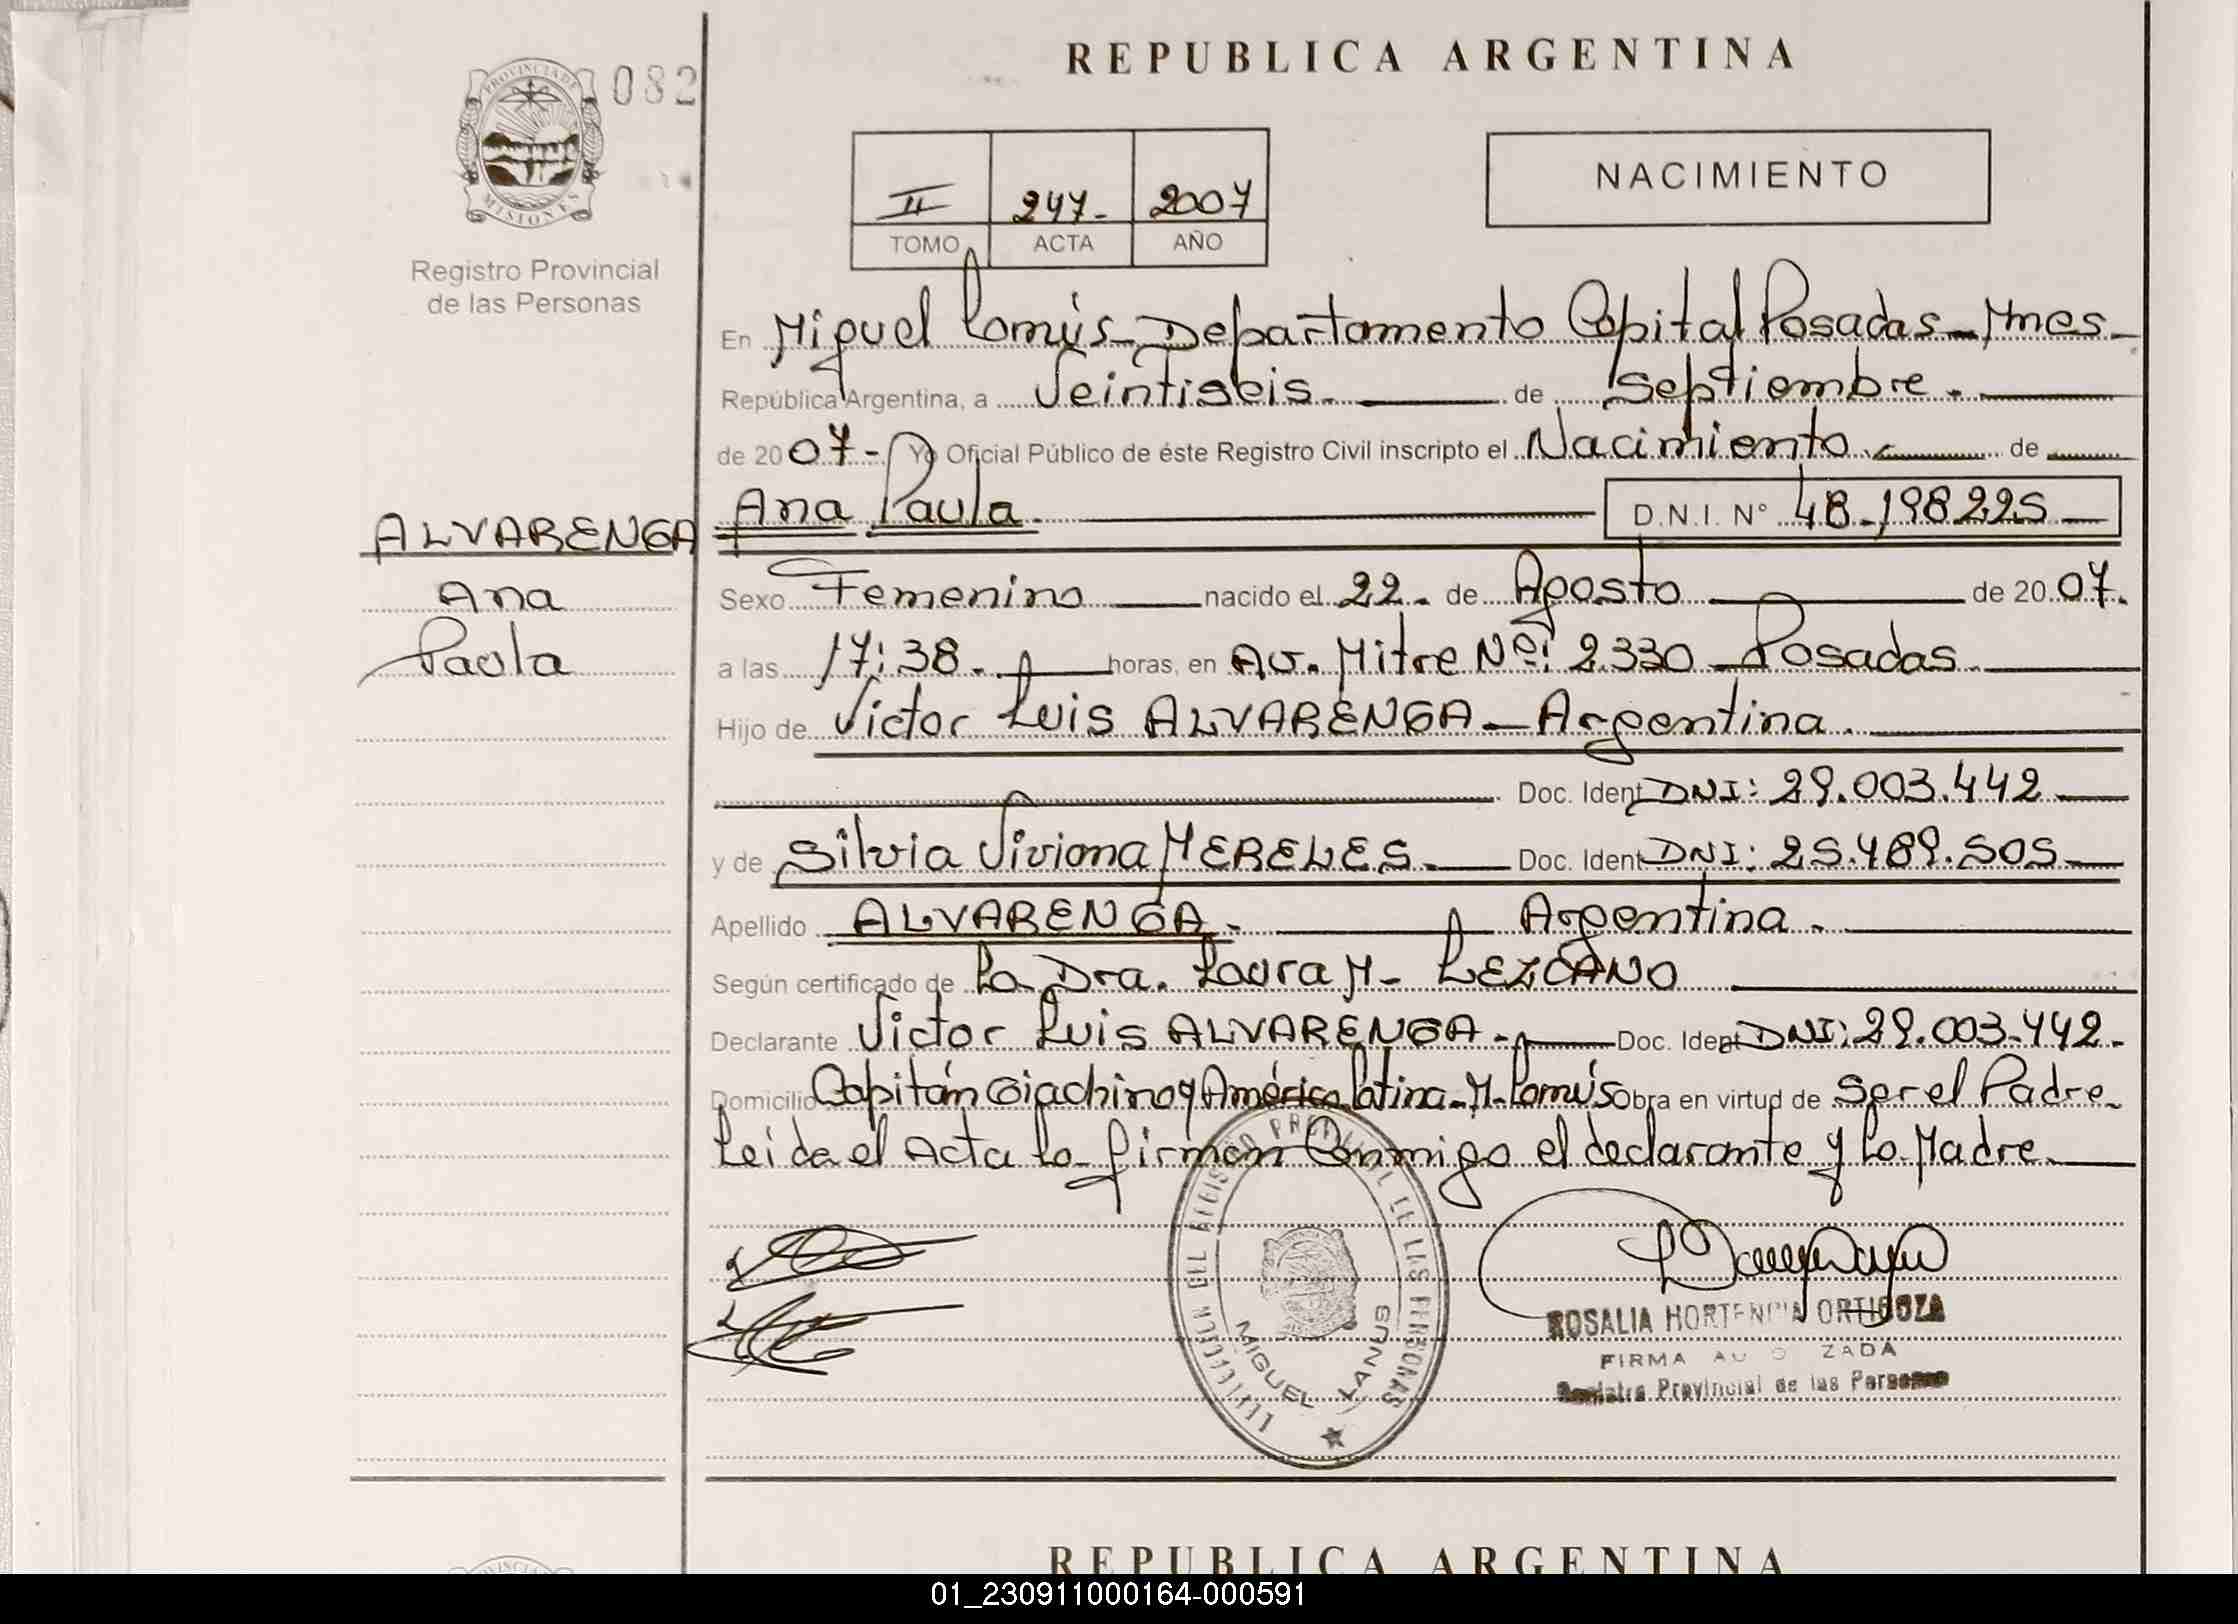 REPUBLICA ARGENTINA
PROVINCIA DE
MISIONES
082
NACIMIENTO
II 247- 2007
TOMO ACTA AÑO
Registro Provincial
de las Personas
En Miguel Lanús - Departamento Capital Posadas - Mnes -
República Argentina, a Veintiseis. de Septiembre.
de 20 07- Yo Oficial Público de éste Registro Civil inscripto el Nacimiento de
ALVARENGA
Ana
Paula
Ana Paula. D.N.I. N° 48.198225
Sexo Femenino nacido el 22. de Agosto de 20 07.
a las 17:38. horas, en Av. Mitre Nº: 2.330 - Posadas
Hijo de Victor Luis ALVARENGA - Argentina.
Doc. Ident DNI: 29.003.442
y de Silvia Viviana MERELES. Doc. Ident DNI: 25.489.505
Apellido ALVARENGA. Argentina.
Según certificado de La Dra. Laura M- LEZCANO
Declarante Victor Luis ALVARENGA. Doc. Ident DNI: 29.003.442.
Domicilio Capitán Giachino y América Latina - M. Lanús Obra en virtud de Ser el Padre
Leida el Acta La firman Conmigo el declarante y La Madre.
DEL REGISTRO PROVINCIAL DE LAS PERSONAS
MIGUEL LANUS
ROSALIA HORTENCIA ORTIGOZA
FIRMA AUTORIZADA
Registro Provincial de las Personas
REPUBLICA ARGENTINA
01_230911000164-000591